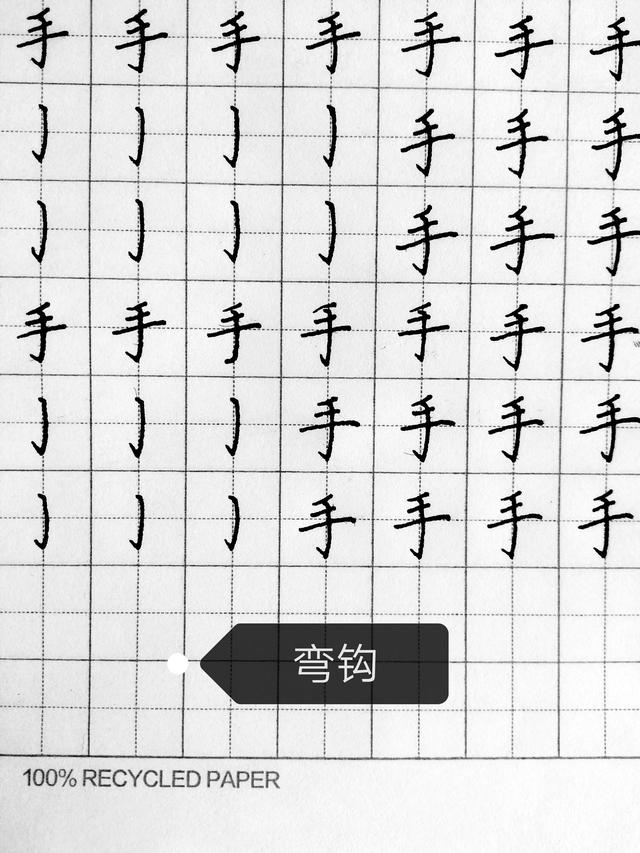 手 手 手 手 手 手 手
亅 亅 亅 亅 手 手 手
亅 亅 亅 亅 手 手 手
手 手 手 手 手 手 手
亅 亅 亅 手 手 手 手
亅 亅 亅 手 手 手 手
弯钩
100% RECYCLED PAPER